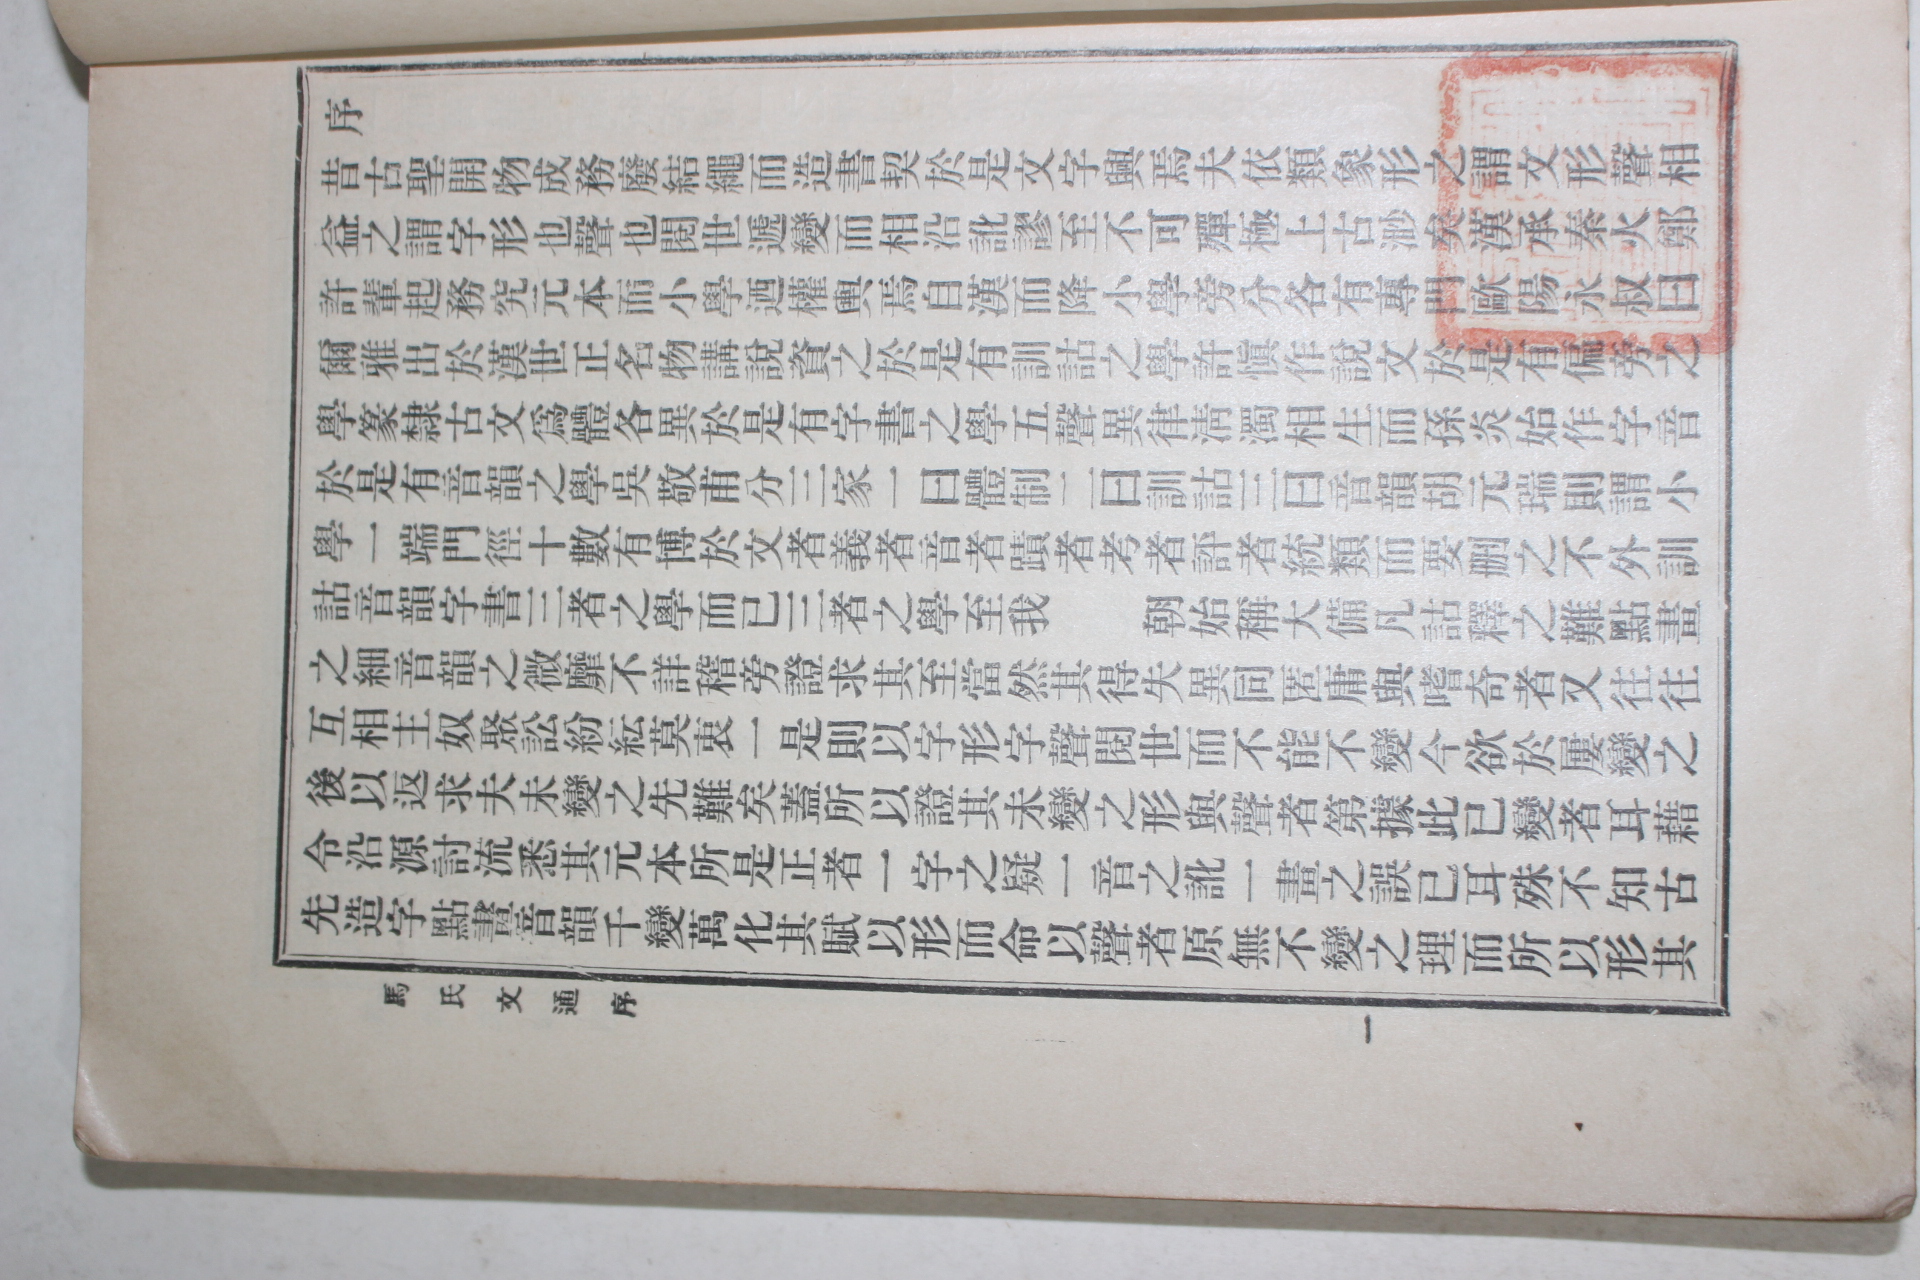 序
昔古聖開物成務廢結繩而造書契於是文字興焉夫依類象形之謂文形聲相
益之謂字形也聲也閱世遞變而相沿訛謬至不可殫極上古渺矣漢承秦火鄭
許輩起務究元本而小學迺權輿焉自漢而降小學旁分各有專門歐陽永叔曰
爾雅出於漢世正名物講說資之於是有訓詁之學許慎作說文於是有偏旁之
學篆隸古文爲體各異於是有字書之學五聲異律淸濁相生而孫炎始作字音
於是有音韻之學吳敬甫分三家一曰體制二曰訓詁三曰音韻胡元瑞則謂小
學一端門徑十數有博於文者義者音者蹟者考者評者統類而要刪之不外訓
詁音韻字書三者之學而已三者之學至我　朝始稱大備凡詁釋之難點畫
之細音韻之微靡不詳稽旁證求其至當然其得失異同匿庸與嗜奇者又往往
互相主奴聚訟紛紜莫衷一是則以字形字聲閱世而不能不變今欲於屢變之
後以返求夫未變之先難矣蓋所以證其未變之形與聲者第據此已變者耳藉
令沿源討流悉其元本所是正者一字之疑一音之訛一畫之誤已耳殊不知古
先造字點畫音韻千變萬化其賦以形而命以聲者原無不變之理而所以形其
馬氏文通序
一